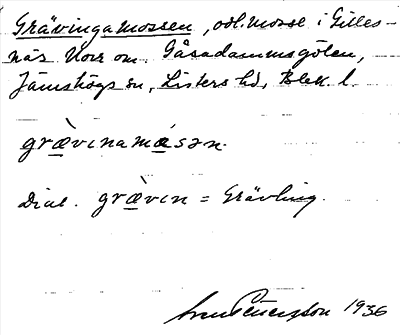 Grävingamossen, odl. mosse i Gilles-
näs Norr om Gåsadammsgölen,
Jämshögs sn, Listers hd, Blek. l.
grævinamåsən.
Dial. grævin = Grävling.
1936